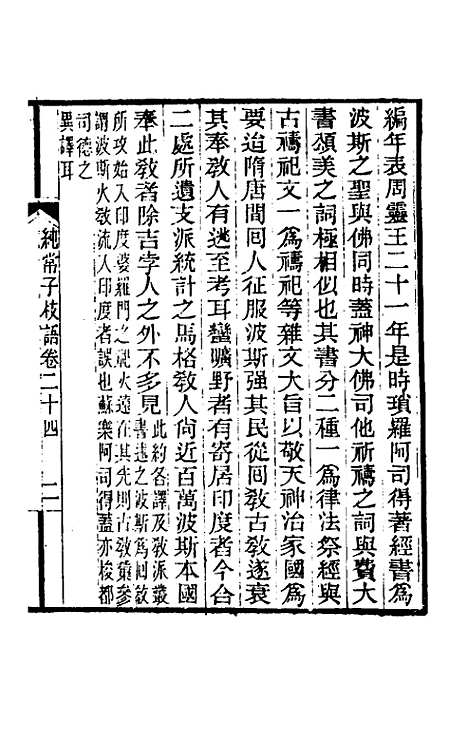 編年表周靈王二十一年是時瑣羅阿司得著經書爲
波斯之聖與佛同時蓋神大佛司他祈禱之詞與費大
書頌美之詞極相似也其書分二種一爲律法祭經與
古禱祀文一爲禱祀等雜文大旨以敬天神治家國爲
要迨隋唐間囘人征服波斯强其民從囘敎古敎遂衰
其奉敎人有逃至考耳蠻曠野者有寄居印度者今合
二處所遺支派統計之馬格敎人尙近百萬波斯本國
奉此敎者除吉孛人之外不多見此約各譯及敎派叢
書述之波斯爲囘敎
所攻始入印度婆羅門之祀火遠在其先則古敎彙參
謂波斯火敎流入印度者誤也蘇樂阿司得蓋亦梭都
司德之
異譯耳
純常子枝語卷二十四
二